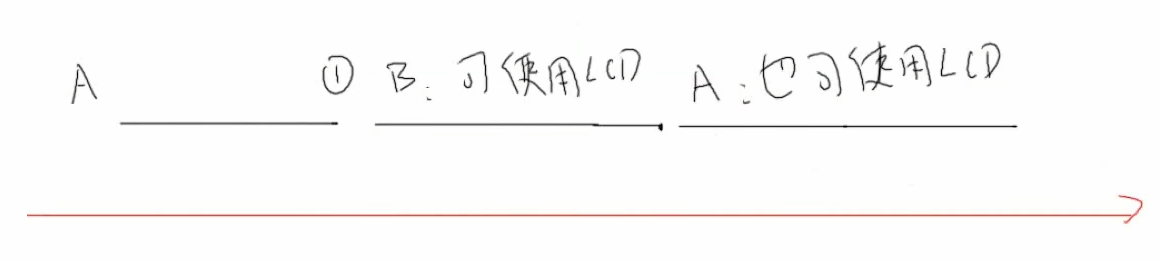 A ① B：可使用LCD A：也可使用LCD